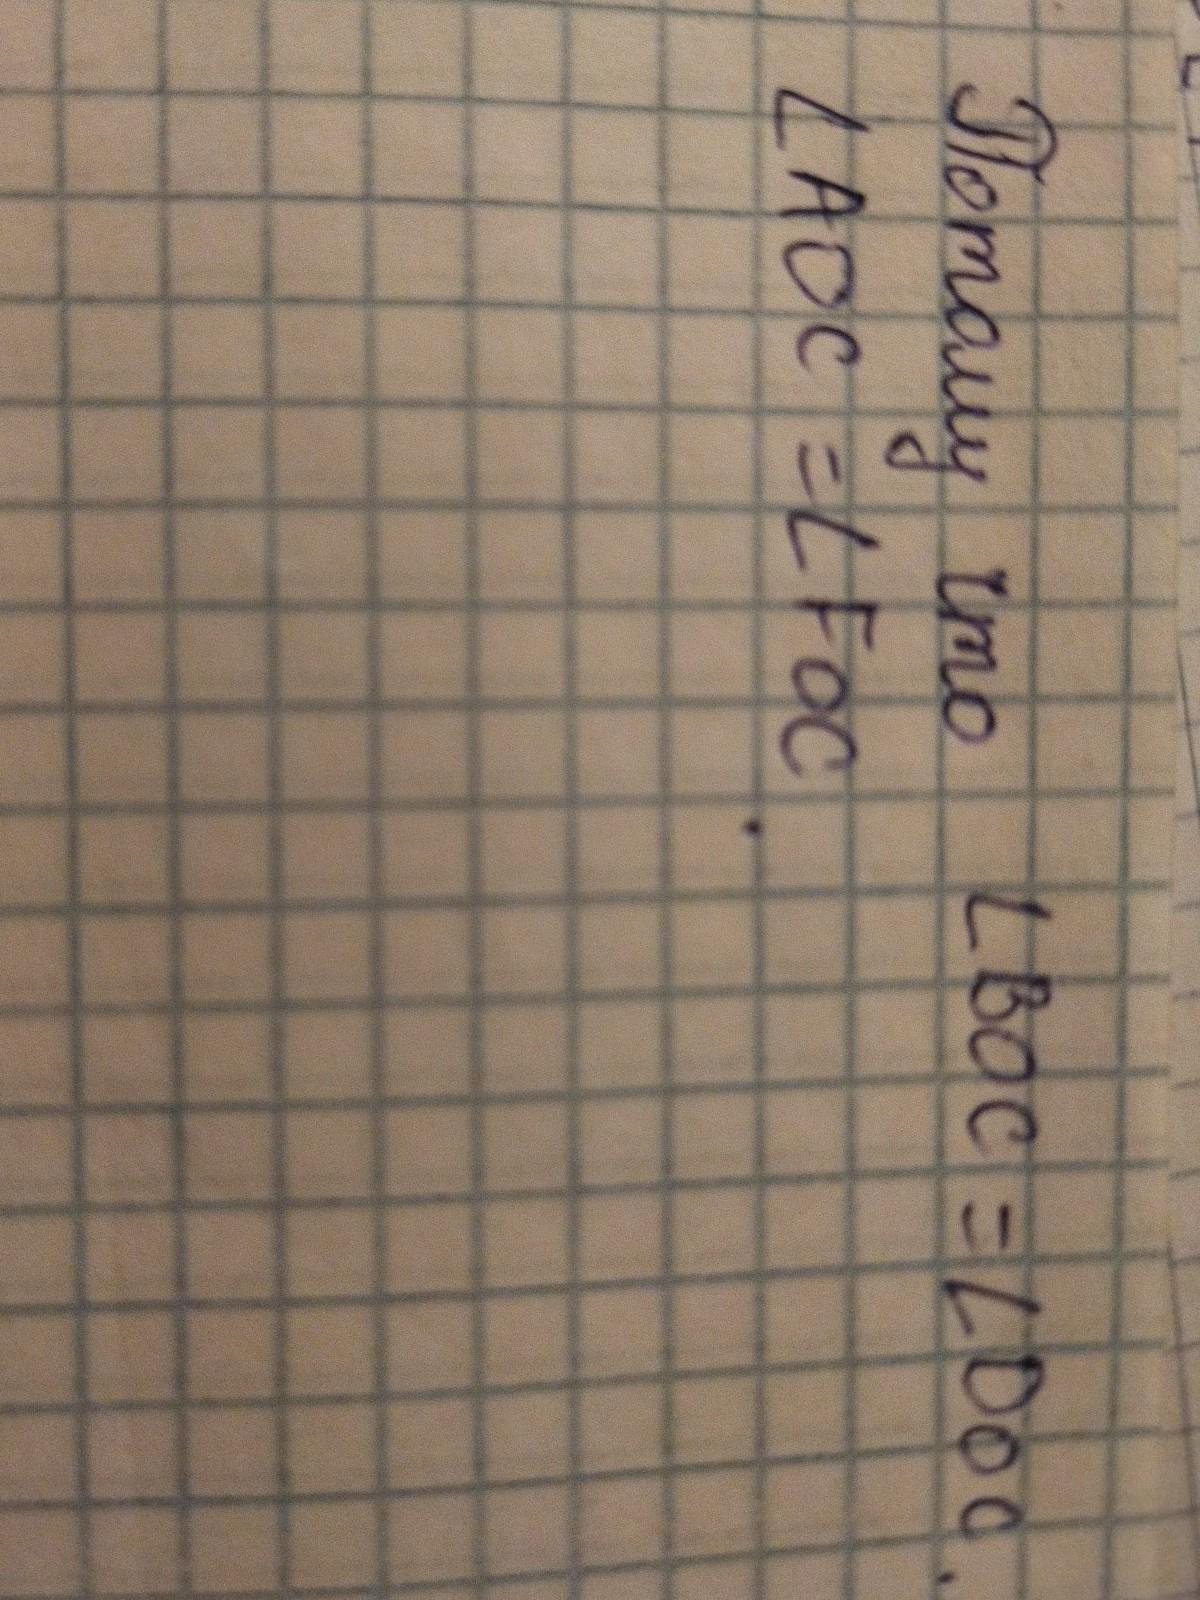 Потому что ∠BOC = ∠DOC,
∠AOC = ∠FOC.